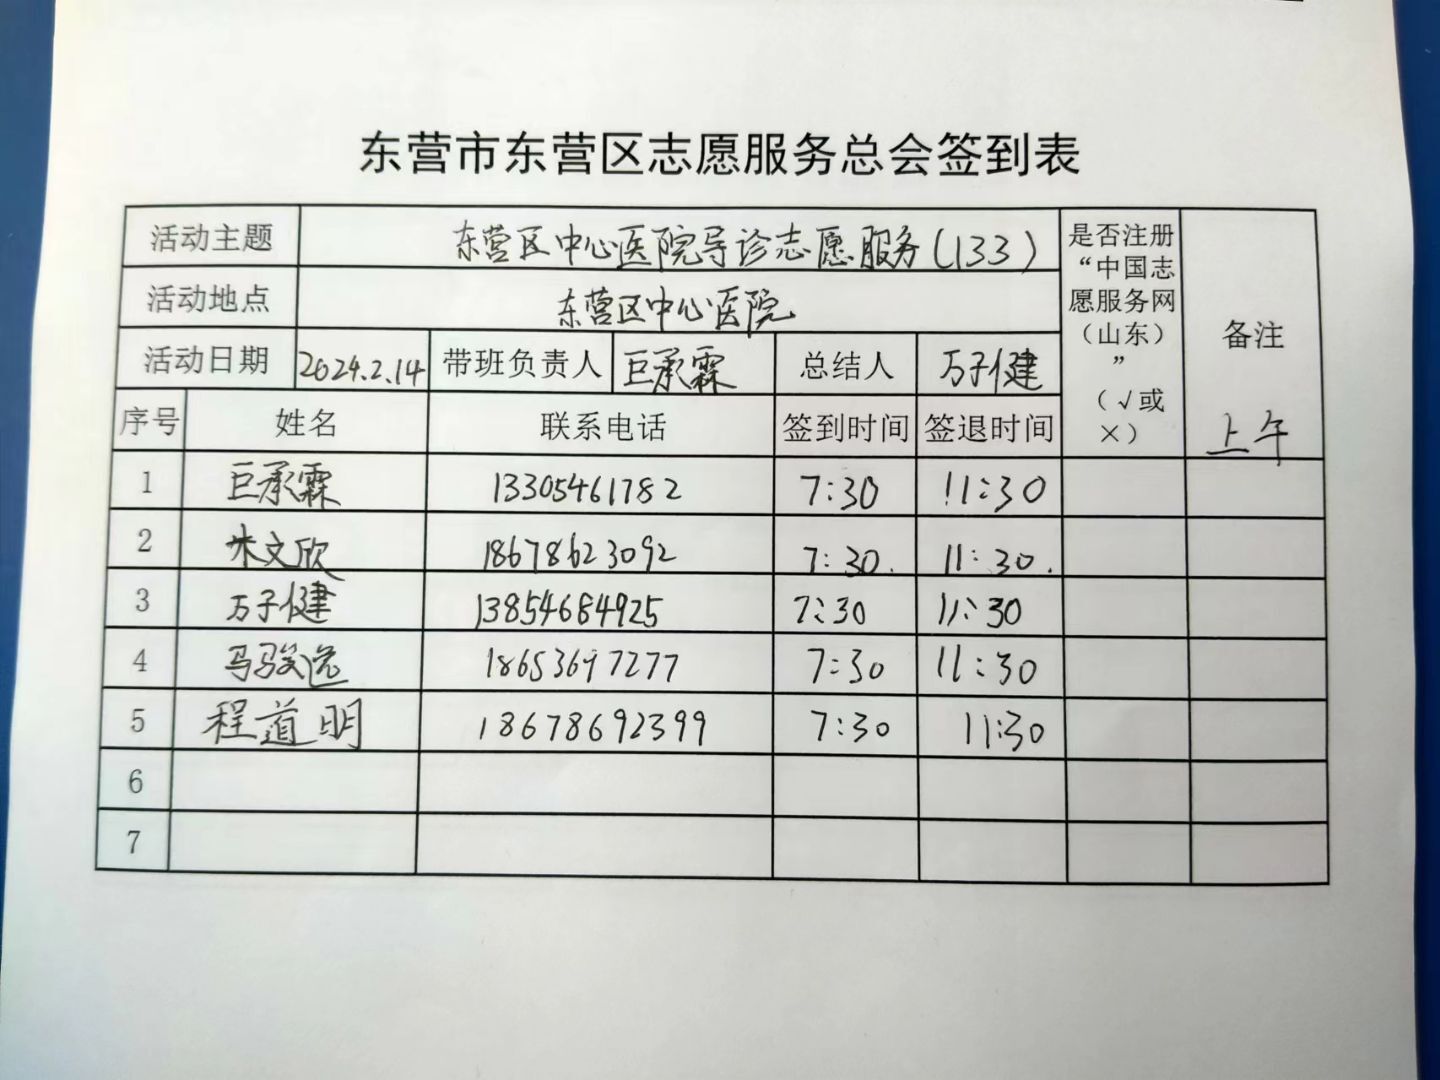 东营市东营区志愿服务总会签到表
活动主题 东营区中心医院导诊志愿服务(133) 是否注册“中国志愿服务网（山东）”（√或×） 备注
活动地点 东营区中心医院
活动日期 2024.2.14 带班负责人 巨承霖 总结人 万子健
序号 姓名 联系电话 签到时间 签退时间 上午
1 巨承霖 13305461782 7:30 11:30
2 朱文欣 18678623092 7:30. 11:30.
3 万子健 13854684925 7:30 11:30
4 马骏逸 18653697277 7:30 11:30
5 程道明 18678692399 7:30 11:30
6
7